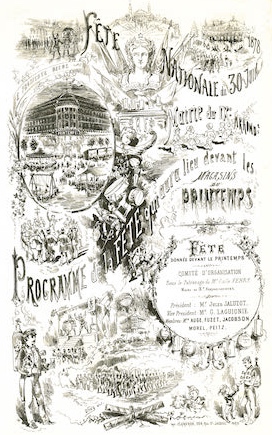 FÊTE
NATIONALE DU 30 JUIN
1878
Mairie du IXe ARRONDt
aura lieu devant les
MAGASINS
DU
PRINTEMPS
PROGRAMME DE LA FÊTE
FÊTE
DONNÉE DEVANT LE PRINTEMPS
COMITÉ D'ORGANISATION
Sous le Patronage de Mr
Président : Mr Jules JALUZOT.
Vice Président : Mr G. LAGUIONIE.
Membres : Mrs AUGÉ, FUZET, JACOBSON
MOREL, PEITZ.